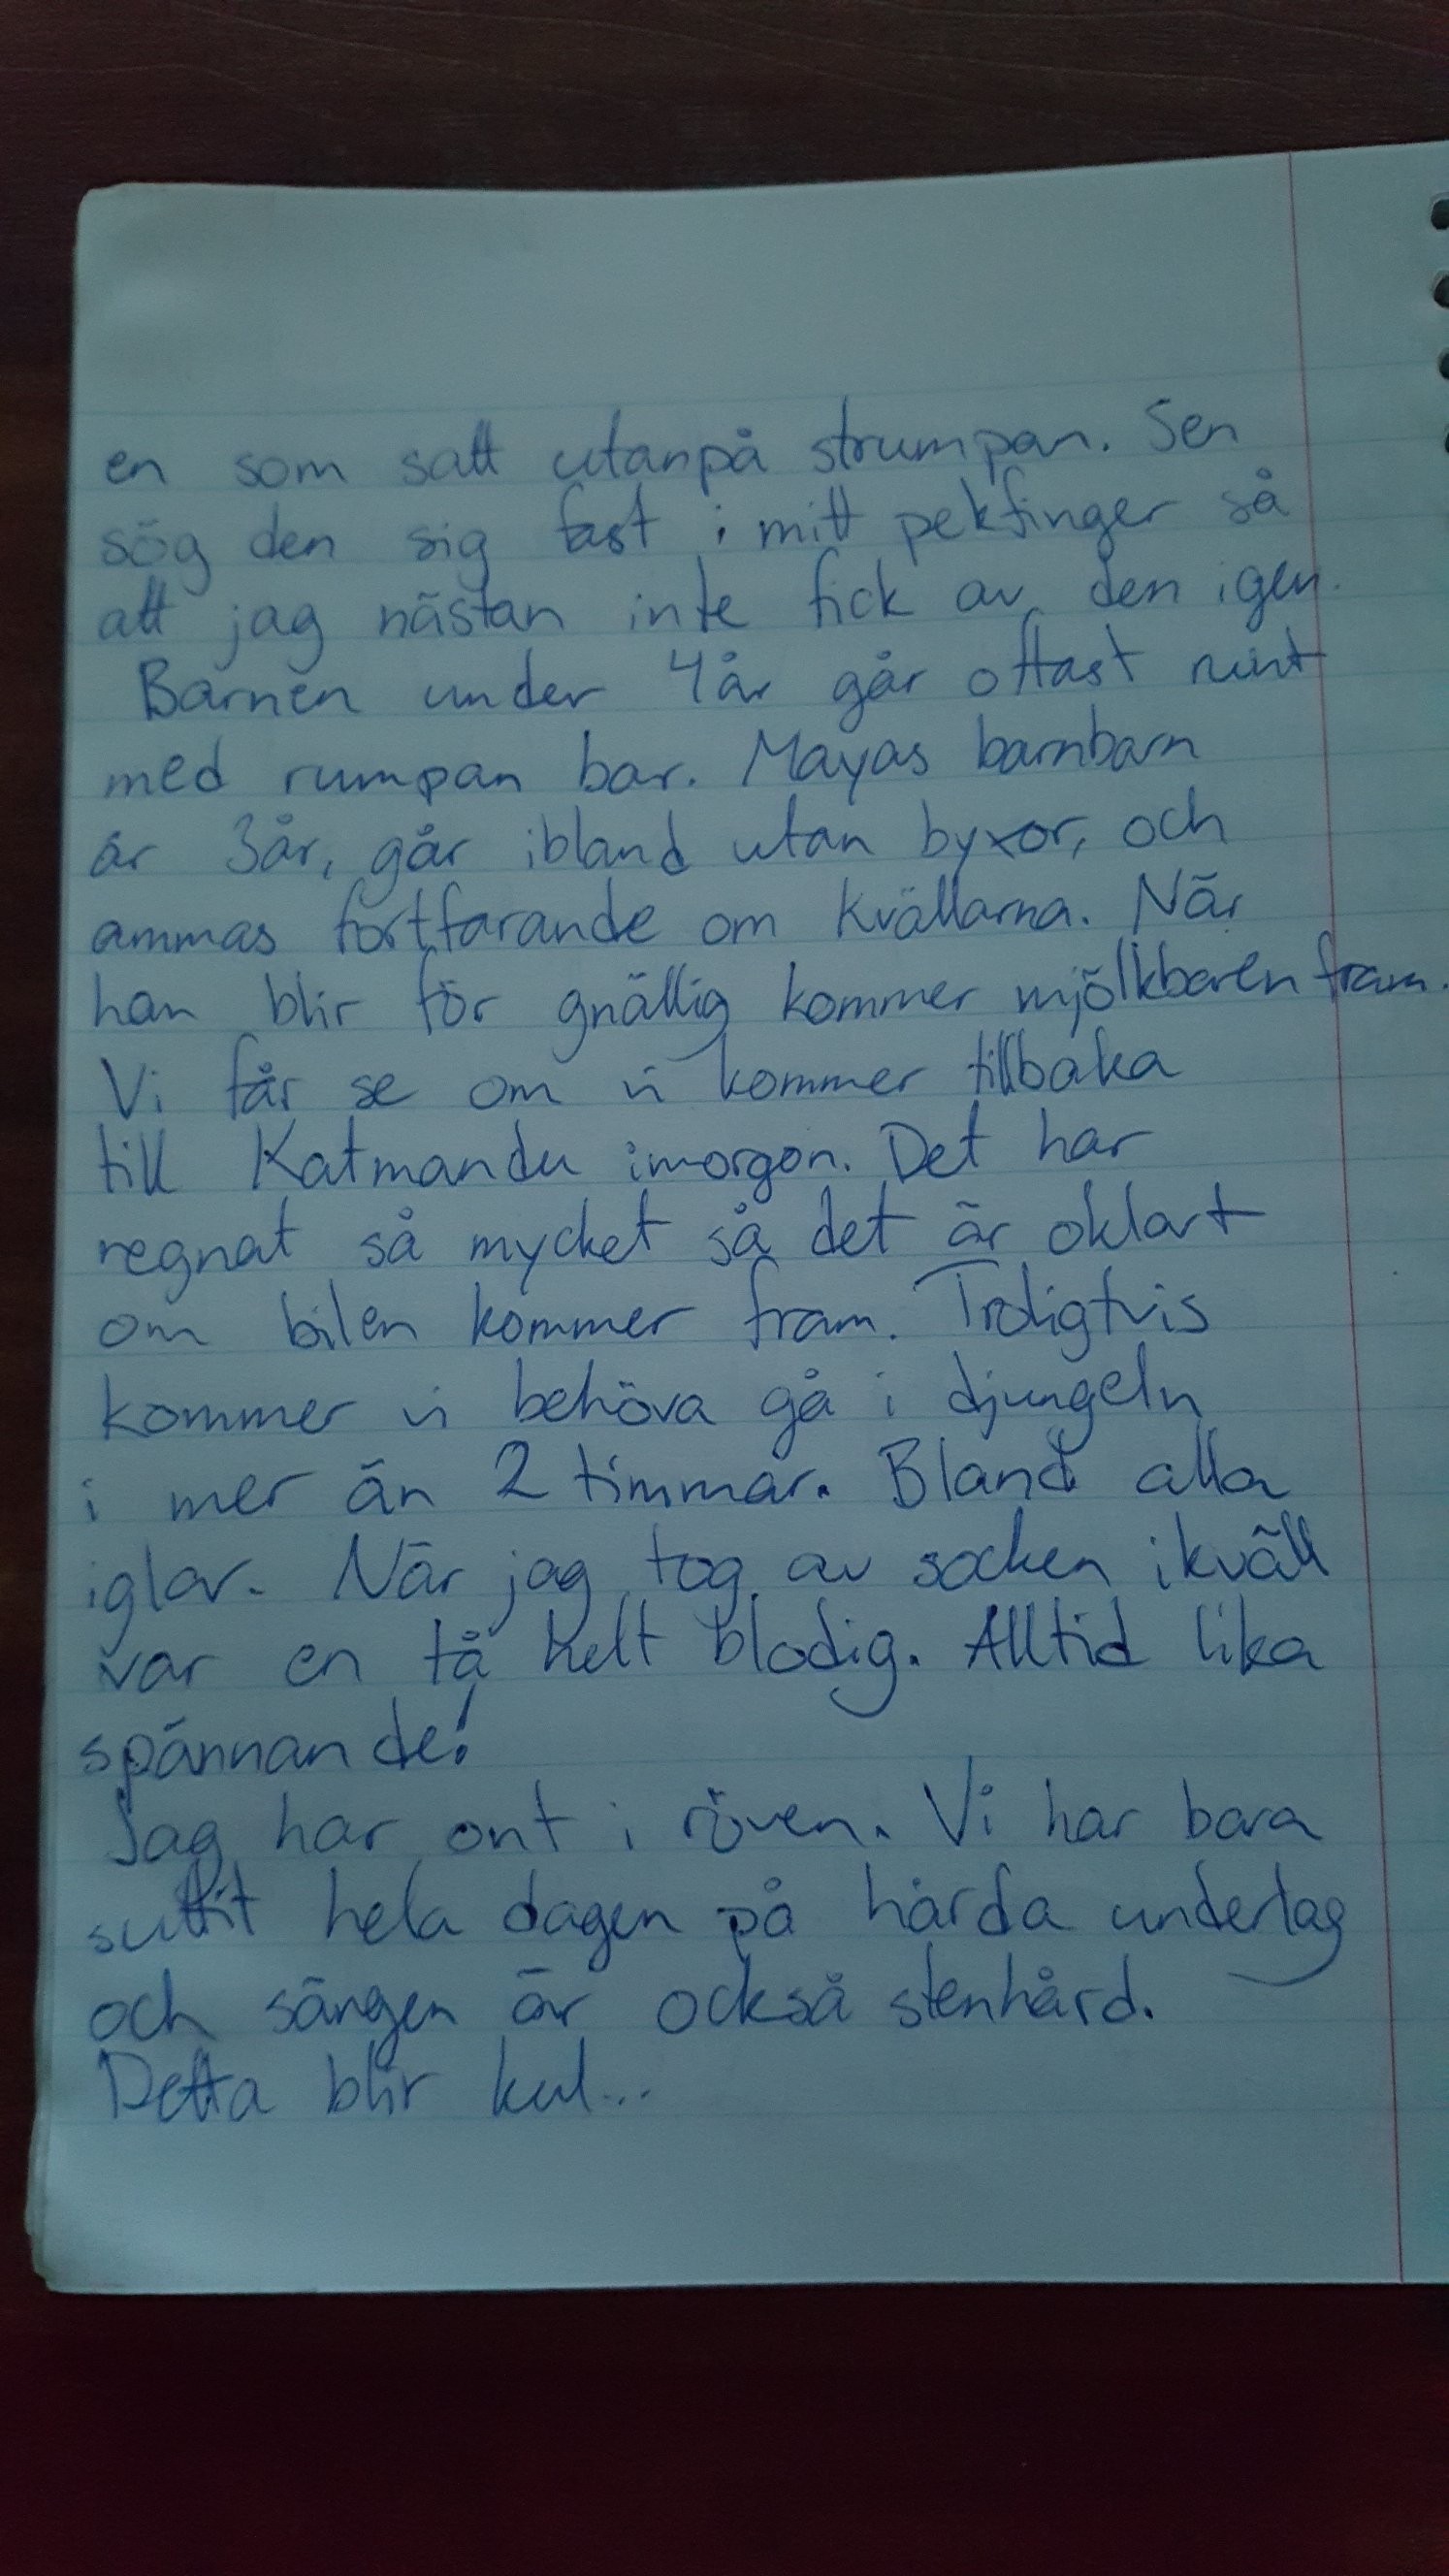 en som satt utanpå strumpan. Sen
sög den sig fast i mitt pekfinger så
att jag nästan inte fick av den igen.
Barnen under 4år går oftast runt
med rumpan bar. Mayas barnbarn
är 3år, går ibland utan byxor, och
ammas fortfarande om kvällarna. När
han blir för gnällig kommer mjölkbaren fram.
Vi får se om vi kommer tillbaka
till Katmandu imorgon. Det har
regnat så mycket så det är oklart
om bilen kommer fram. Troligtvis
kommer vi behöva gå i djungeln
i mer än 2 timmar. Bland alla
iglar. När jag tog av socken ikväll
var en tå helt blodig. Alltid lika
spännande!
Jag har ont i röven. Vi har bara
suttit hela dagen på hårda underlag
och sängen är också stenhård.
Detta blir kul...